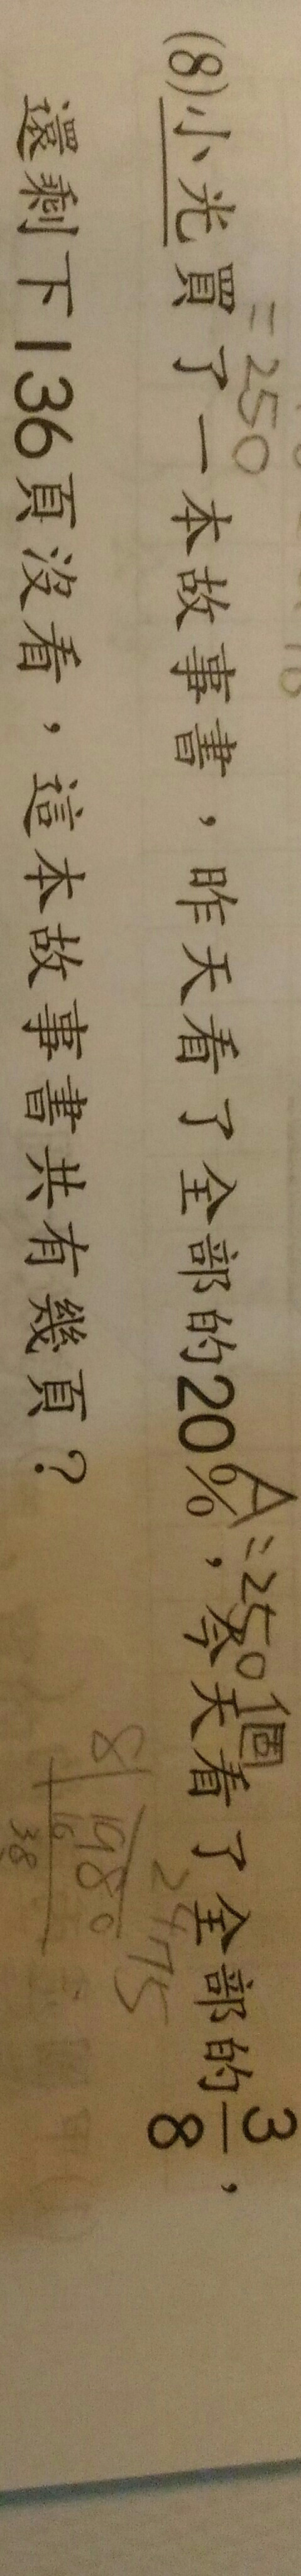 =250
A=250個
(8)小光買了一本故事書，昨天看了全部的20%，今天看了全部的3/8，
2475
8 1980
16
38
還剩下136頁沒看，這本故事書共有幾頁？